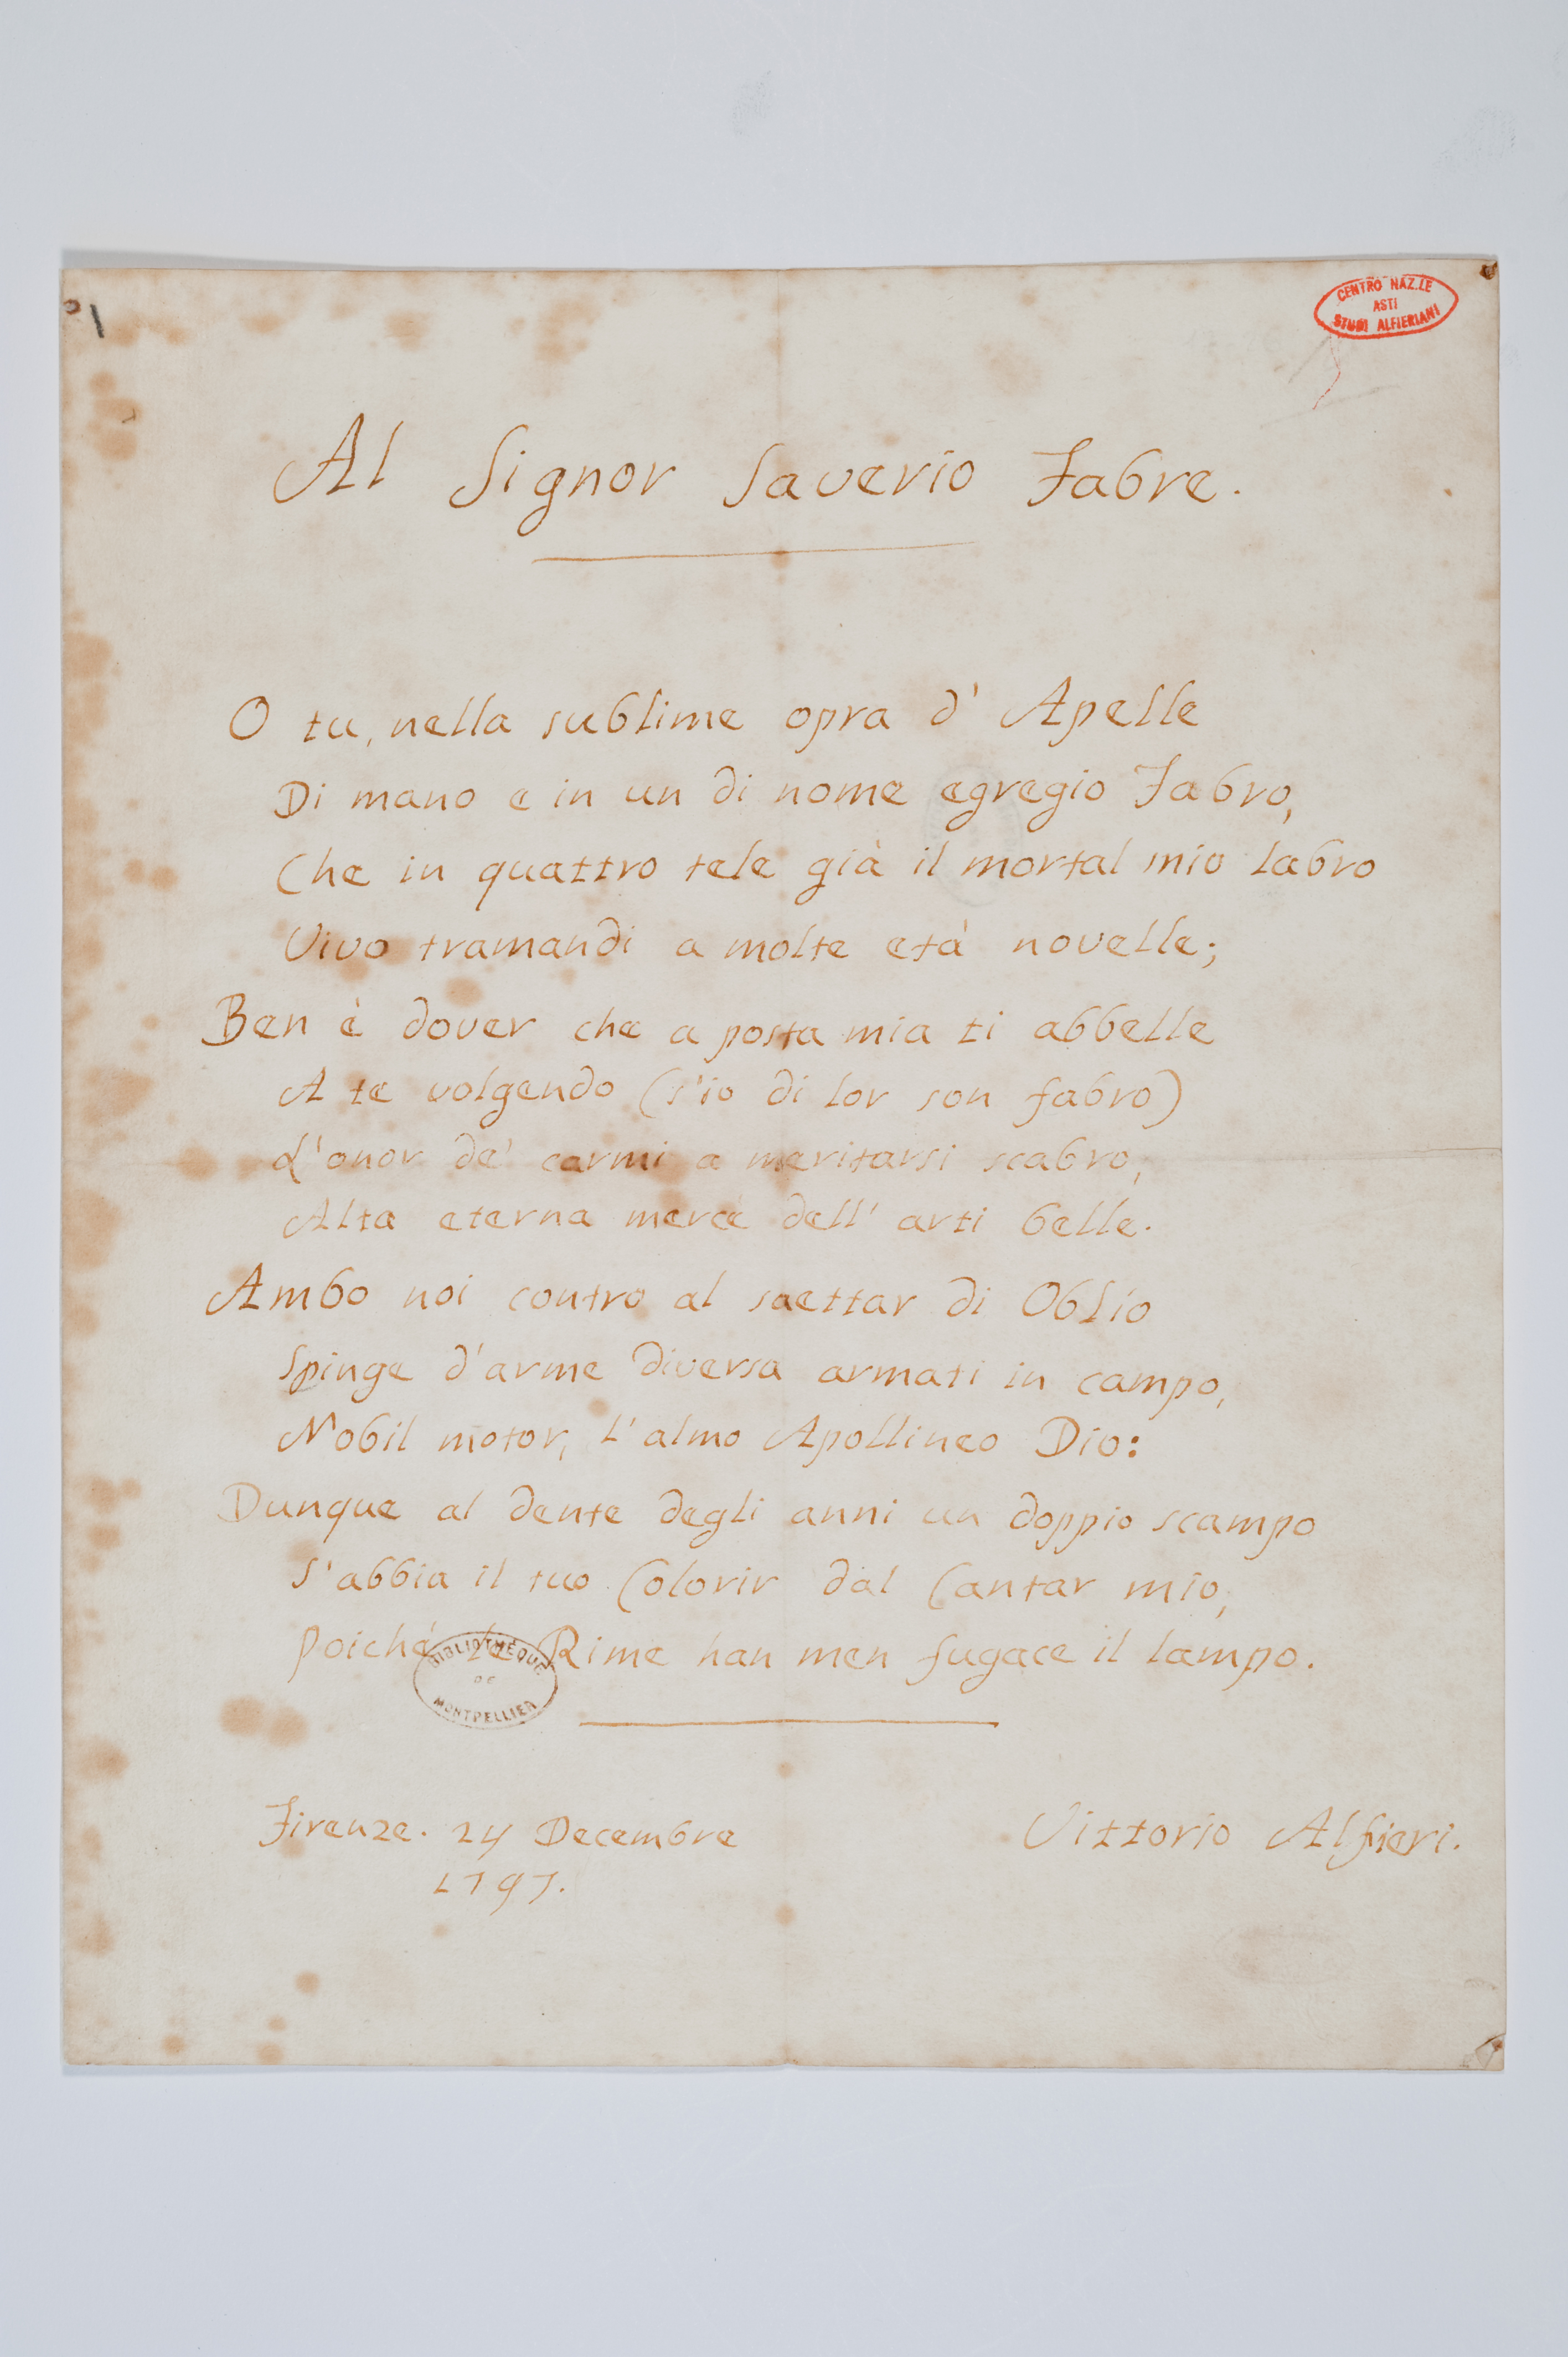 CENTRO NAZ.LE
ASTI
STUDI ALFIERIANI
Al Signor Saverio Fabre.
O tu, nella sublime opra d' Apelle
Di mano e in un di nome egregio Fabro,
Che in quattro tele già il mortal mio labro
Vivo tramandi a molte età novelle;
Ben è dover che a posta mia ti abbelle
A te volgendo (s'io di lor son fabro)
L'onor de' carmi a meritarsi scabro,
Alta eterna mercè dell' arti belle.
Ambo noi contro al saettar di Oblio
Spinge d'arme diversa armati in campo,
Nobil motor, l'almo Apollineo Dio:
Dunque al dente degli anni un doppio scampo
S'abbia il tuo Colorir dal Cantar mio,
Poiché le Rime han men fugace il lampo.
BIBLIOTHÈQUE
DE
MONTPELLIER
Firenze. 24 Decembre
1797.
Vittorio Alfieri.